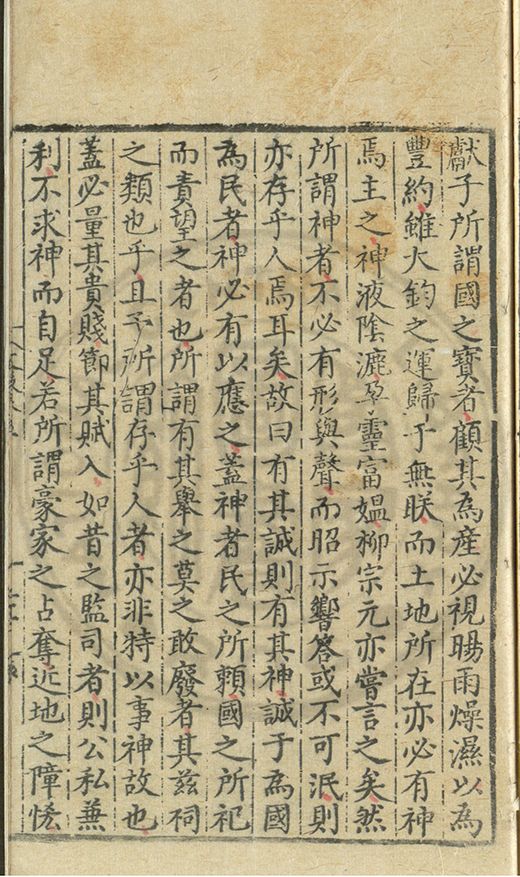 獻子所謂國之寶者顧其為産必視暘雨燥濕以為
豐約雖大鈞之運歸于無眹而土地所在亦必有神
焉主之神液陰漉孕靈富媼柳宗元亦嘗言之矣然
所謂神者不必有形與聲而昭示響答或不可泯則
亦存乎人焉耳矣故曰有其誠則有其神誠于為國
為民者神必有以應之蓋神者民之所頼國之所祀
而責望之者也所謂有其舉之莫之敢廢者其兹祠
之類也乎且予所謂存乎人者亦非特以事神故也
蓋必量其貴賤節其賦入如昔之監司者則公私兼
利不求神而自足若所謂豪家之占奪近地之障恡